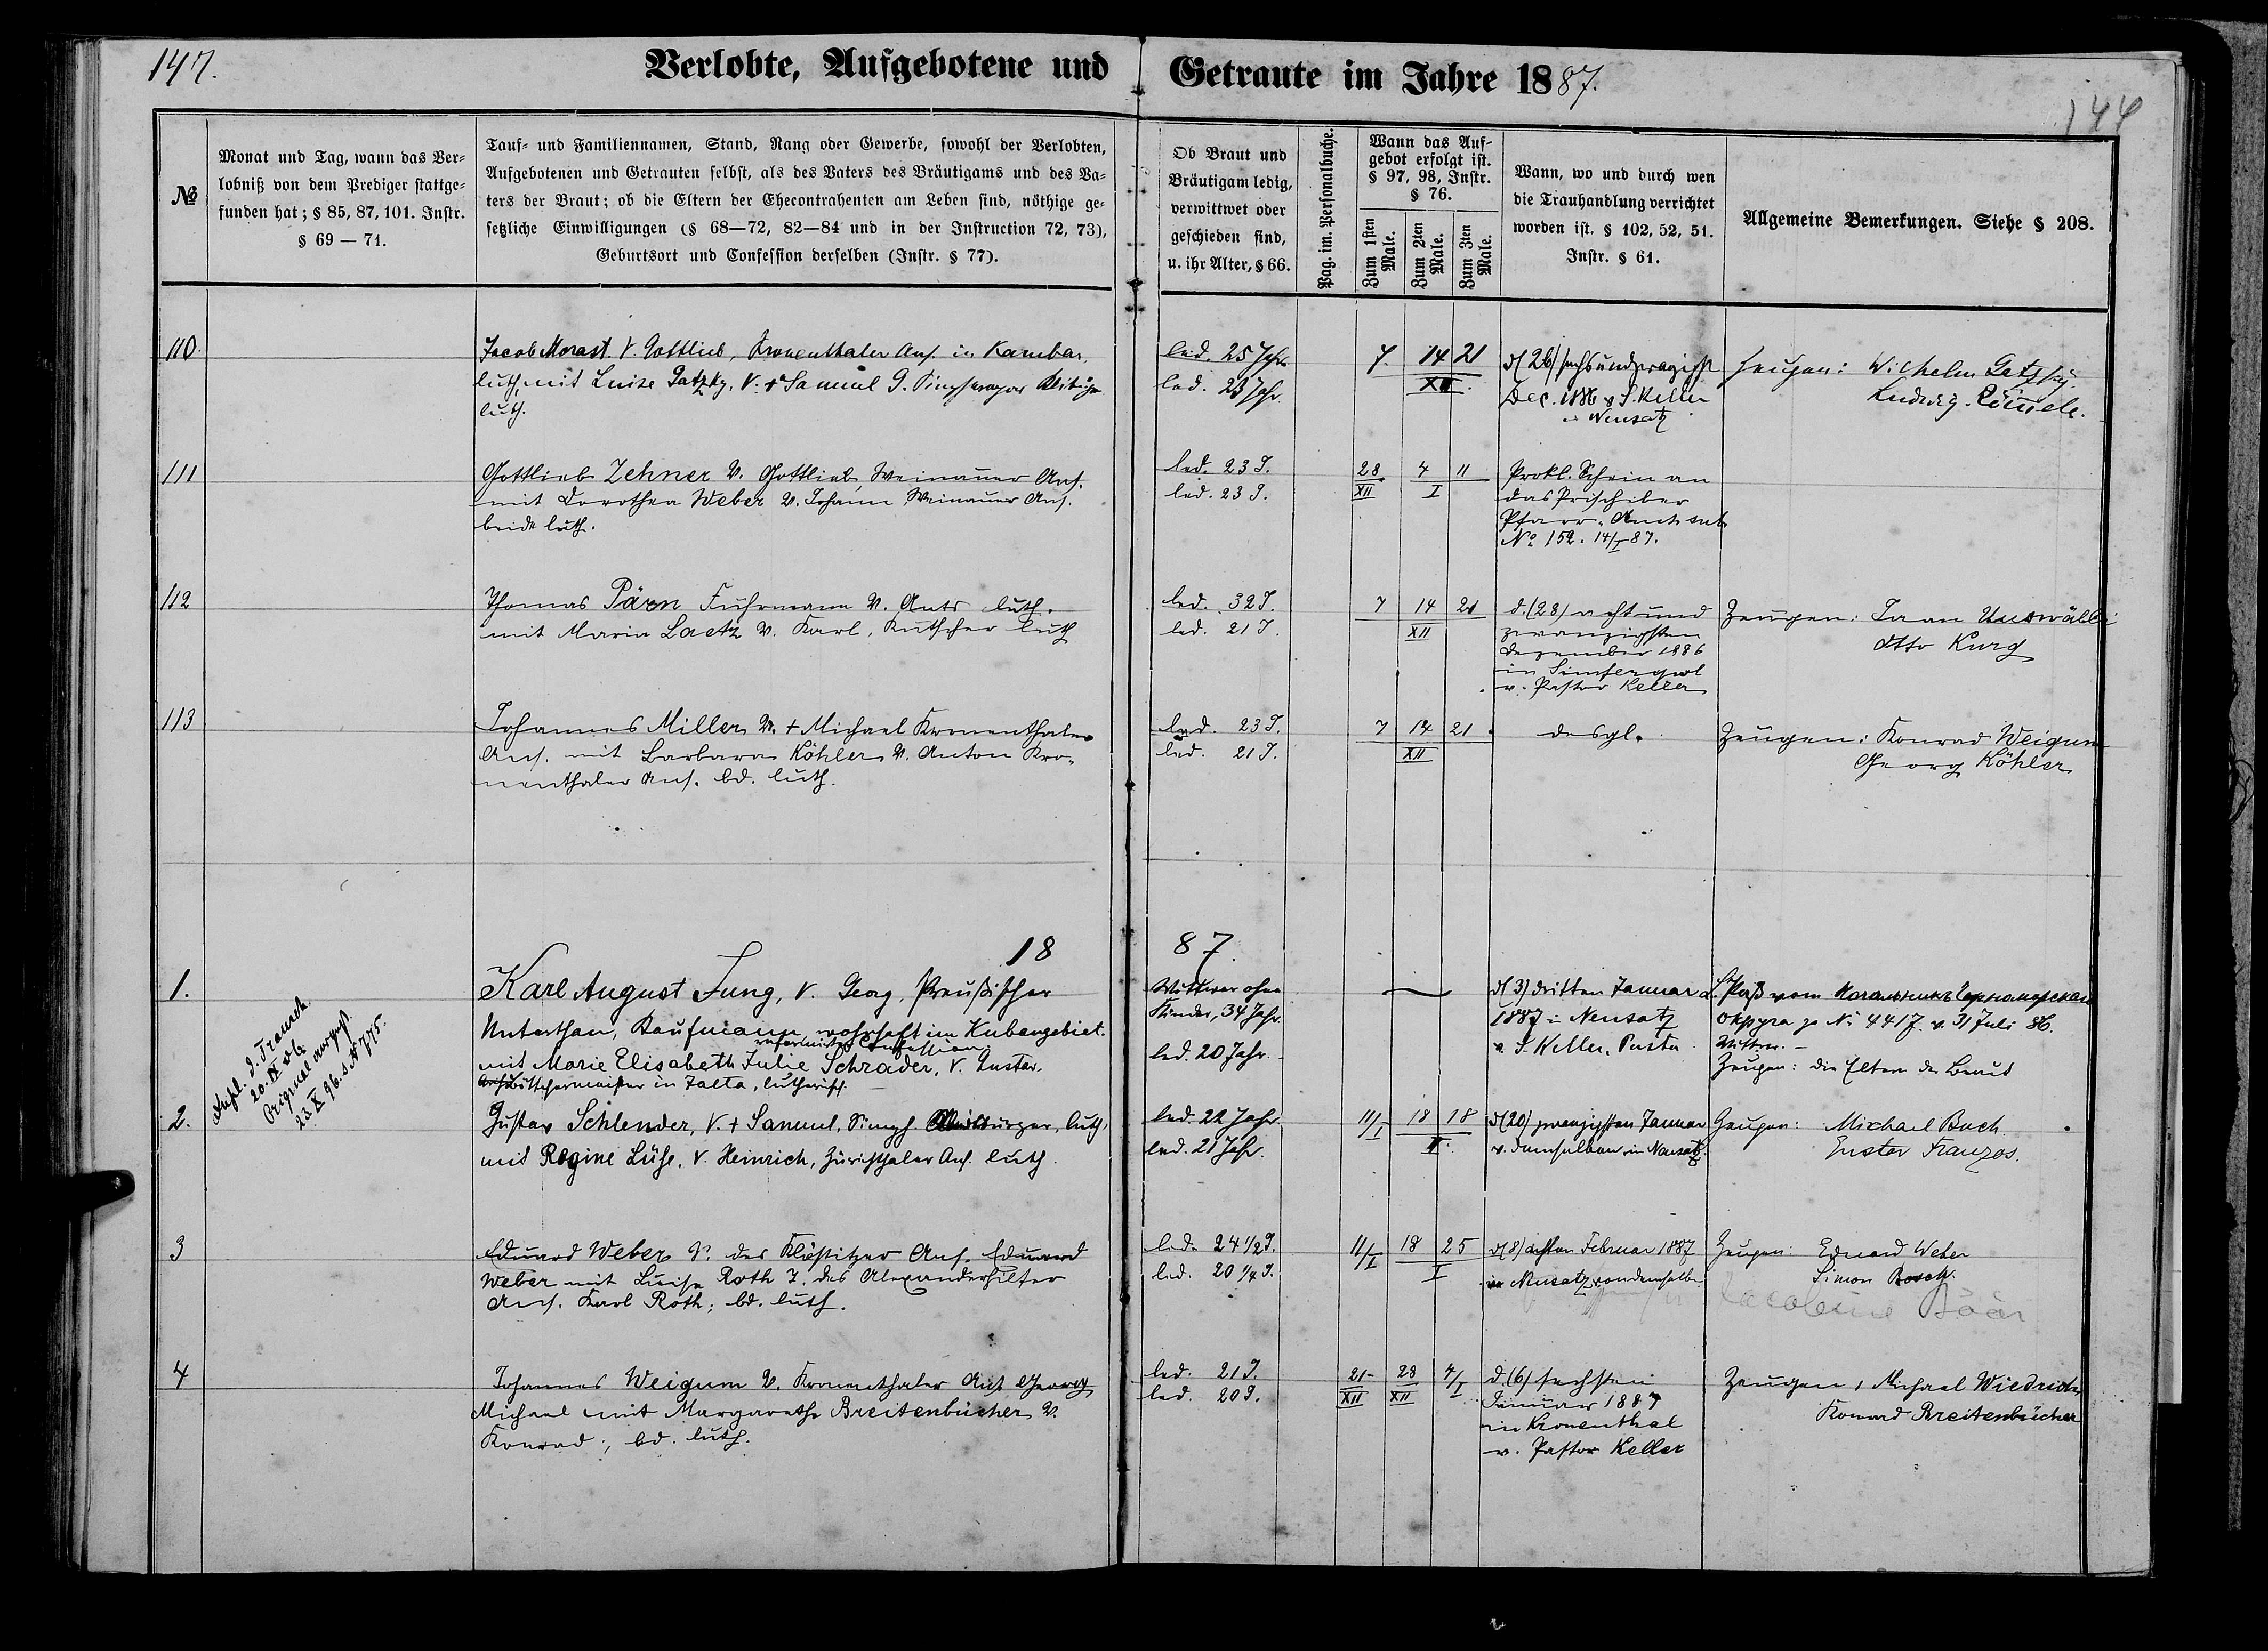 147.
Verlobte, Aufgebotene und Getraute im Jahre 1887.
144
№
Monat und Tag, wann das Ver-
lobniß von dem Prediger stattge-
funden hat; § 85, 87, 101. Instr.
§ 69 — 71.
Tauf- und Familiennamen, Stand, Rang oder Gewerbe, sowohl der Verlobten,
Aufgebotenen und Getrauten selbst, als des Vaters des Bräutigams und des Va-
ters der Braut; ob die Eltern der Ehecontrahenten am Leben sind, nöthige ge-
setzliche Einwilligungen (§ 68—72, 82—84 und in der Instruction 72, 73),
Geburtsort und Confession derselben (Instr. § 77).
Ob Braut und
Bräutigam ledig,
verwittwet oder
geschieden sind,
u. ihr Alter, § 66.
Pag. im Personalbuche.
Wann das Auf-
gebot erfolgt ist.
§ 97, 98, Instr.
§ 76.
Zum 1sten
Male.
Zum 2ten
Male.
Zum 3ten
Male.
Wann, wo und durch wen
die Trauhandlung verrichtet
worden ist. § 102, 52, 51.
Instr. § 61.
Allgemeine Bemerkungen. Siehe § 208.
110.
Jacob Morast V. Gottlieb, Kronenthaler Ans. in Kambar,
luth. mit Luise Gatzky, V. + Samuel
luth.
led. 25 Jahr
led. 23 Jahr
7. 14 21
XII.
d (26) sechsundzwanzigst
Dec. 1886 v. J. Keller
in Neusatz
Zeugen: Wilhelm Gatzky.
Ludwig
111
Gottlieb Zehner V. Gottlieb, Weinauer Ans.
mit Dorothea Weber V. Johann Weinauer Ans.
beide luth.
led. 23 J.
led. 23 J.
28 4 11
XII I
Prokl. Schein an
das Prischiber
Pfarr-Amt sub
No 152. 14/I 87.
112
Thomas Pärn Fuhrmann V. Ants luth.
mit Maria Laetz V. Karl, Kutscher luth
led. 32 J.
led. 21 J.
7 14 21
XII
d. (28) acht und
zwanzigsten
Dezember 1886
in Simferopol
v. Pastor Keller
Zeugen: Jaan
Otto Kurg
113
Johannes Miller V. + Michael Kronenthaler
Ans. mit Barbara Köhler V. Anton Kro-
nenthaler Ans. bd. luth.
led. 23 J.
led. 21 J.
7 14 21
XII
desgl.
Zeugen: Konrad Weigum
Georg Köhler
18 87.
1.
Karl August Jung, V. Georg, Preußischer
Unterthan, Kaufmann wohnhaft im Kubangebiet.
reformirter Confession
mit Marie Elisabeth Julie Schrader, V. Gustav,
Böttchermeister in Jalta, lutherisch. —
Wittwer ohne
Kinder, 34 Jahr.
led. 20 Jahr.
d (3) dritten Januar
1887 in Neusatz
v. J. Keller, Pastor
Paß vom Начальникъ Черноморскаго
Округа за № 4417. v. 31 Juli 86.
Wittwer. —
Zeugen: die Eltern der Braut
d. Trausch.
20. IX
Original
23 X 96. s. № 775.
2.
Gustav Schlender, V. + Samuel, Simph. luth,
mit Regine Lühe, V. Heinrich, Zürichthaler Ans. luth.
led. 22 Jahr.
led. 21 Jahr.
11/I 18 18
d (20) zwanzigsten Januar
v. demselben in Neusatz.
Zeugen: Michael Buch
Gustav Franzos.
3
Eduard Weber V. des Klöstitzer Ans. Eduard
Weber mit Luise Roth T. des Alexanderhilfer
Ans. Karl Roth; bd. luth.
led. 24 1/2 J.
led. 20 1/4 J.
11/I 18 25
I
d (8) achten Februar 1887
in Neusatz von demselben
Zeugen: Eduard Weber
Simon Bosch.
Jacobine Bäär
4
Johannes Weigum V. Kronenthaler Ans. Georg
Michael mit Margarethe Breitenbücher V.
Konrad; bd. luth.
led. 21 J.
led. 20 J.
21 28 4/I
XII XII
d. (6) sechsten
Januar 1887
in Kronenthal
v. Pastor Keller
Zeugen: Michael
Konrad Breitenbücher